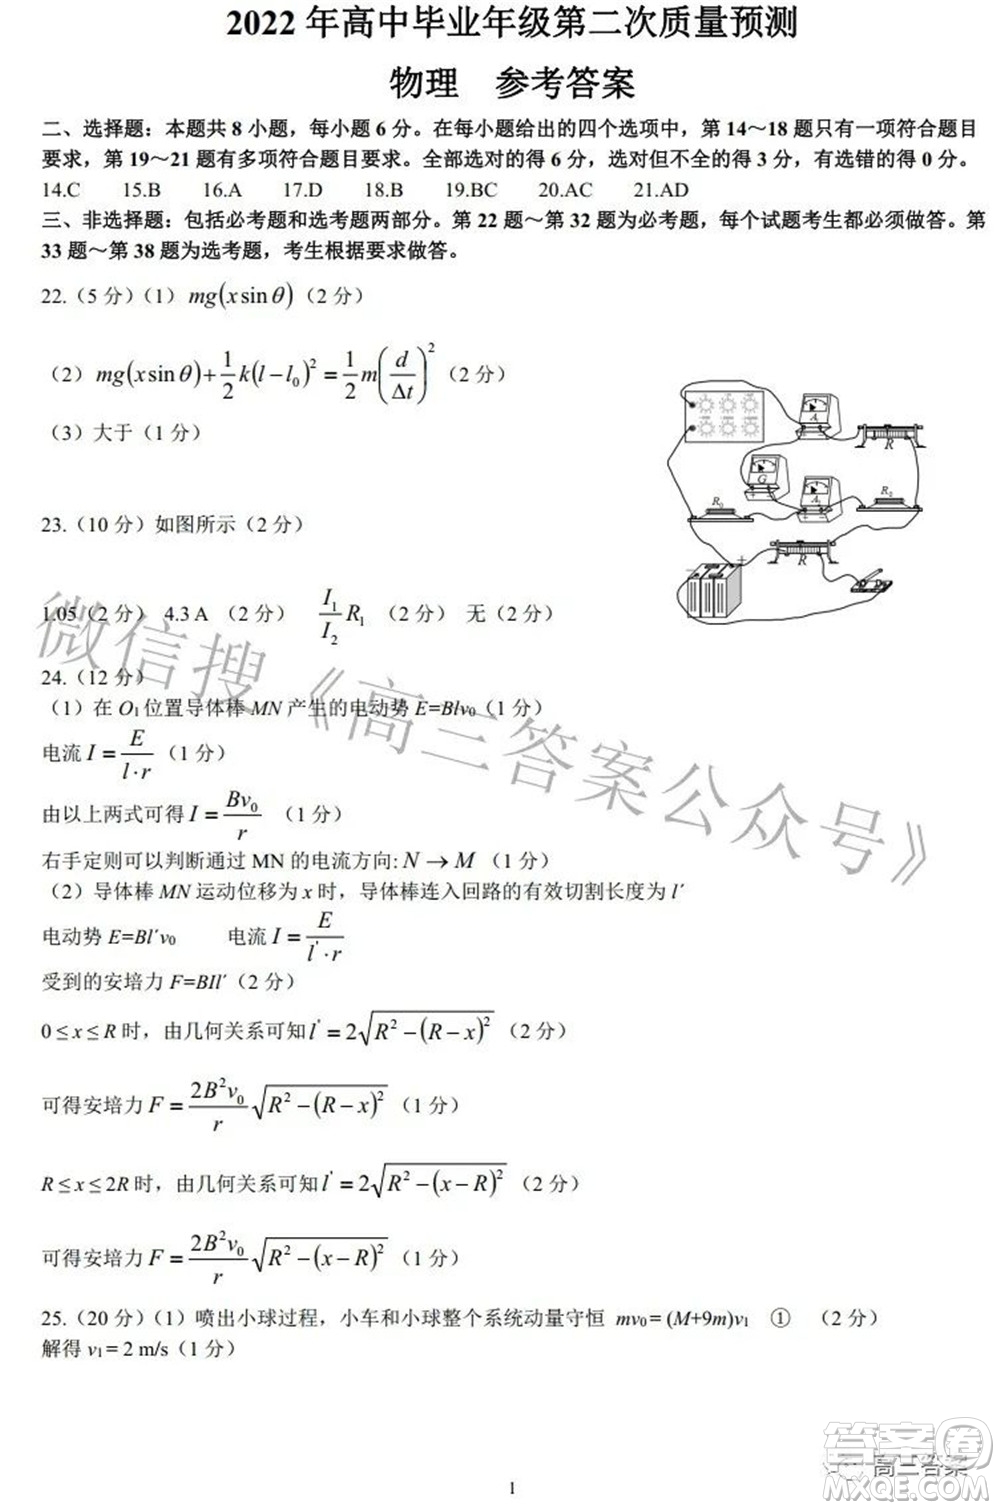 2022 年高中毕业年级第二次质量预测
物理 参考答案
二、选择题：本题共 8 小题，每小题 6 分。在每小题给出的四个选项中，第 14～18 题只有一项符合题目
要求，第 19～21 题有多项符合题目要求。全部选对的得 6 分，选对但不全的得 3 分，有选错的得 0 分。
14.C 15.B 16.A 17.D 18.B 19.BC 20.AC 21.AD
三、非选择题：包括必考题和选考题两部分。第 22 题～第 32 题为必考题，每个试题考生都必须做答。第
33 题～第 38 题为选考题，考生根据要求做答。
22.（5 分）（1） mg(x sin θ)（2 分）
（2） mg(x sin θ)+1/2 k(l−l₀)²=1/2 m(d/Δt)²（2 分）
（3）大于（1 分）
A
R
G
R₀
A₂
R₂
R
23.（10 分）如图所示（2 分）
1.05（2 分） 4.3 A （2 分） I₁/I₂ R₁ （2 分） 无（2 分）
24.（12 分）
（1）在 O₁ 位置导体棒 MN 产生的电动势 E=Blv₀（1 分）
电流 I = E/(l·r)（1 分）
由以上两式可得 I = Bv₀/r （1 分）
右手定则可以判断通过 MN 的电流方向: N → M（1 分）
（2）导体棒 MN 运动位移为 x 时，导体棒连入回路的有效切割长度为 l′
电动势 E=Bl′v₀ 电流 I = E/(l′·r)
受到的安培力 F=BIl′（2 分）
0 ≤ x ≤ R 时，由几何关系可知 l′ = 2√(R²−(R−x)²)（2 分）
可得安培力 F = 2B²v₀/r √(R²−(R−x)²)（1 分）
R ≤ x ≤ 2R 时，由几何关系可知 l′ = 2√(R²−(x−R)²)（2 分）
可得安培力 F = 2B²v₀/r √(R²−(x−R)²)（1 分）
25.（20 分）（1）喷出小球过程，小车和小球整个系统动量守恒 mv₀ = (M+9m)v₁ ① （2 分）
解得 v₁ = 2 m/s（1 分）
1
微信搜《高三答案公众号》
答案圈
高三答案
MXQE.COM